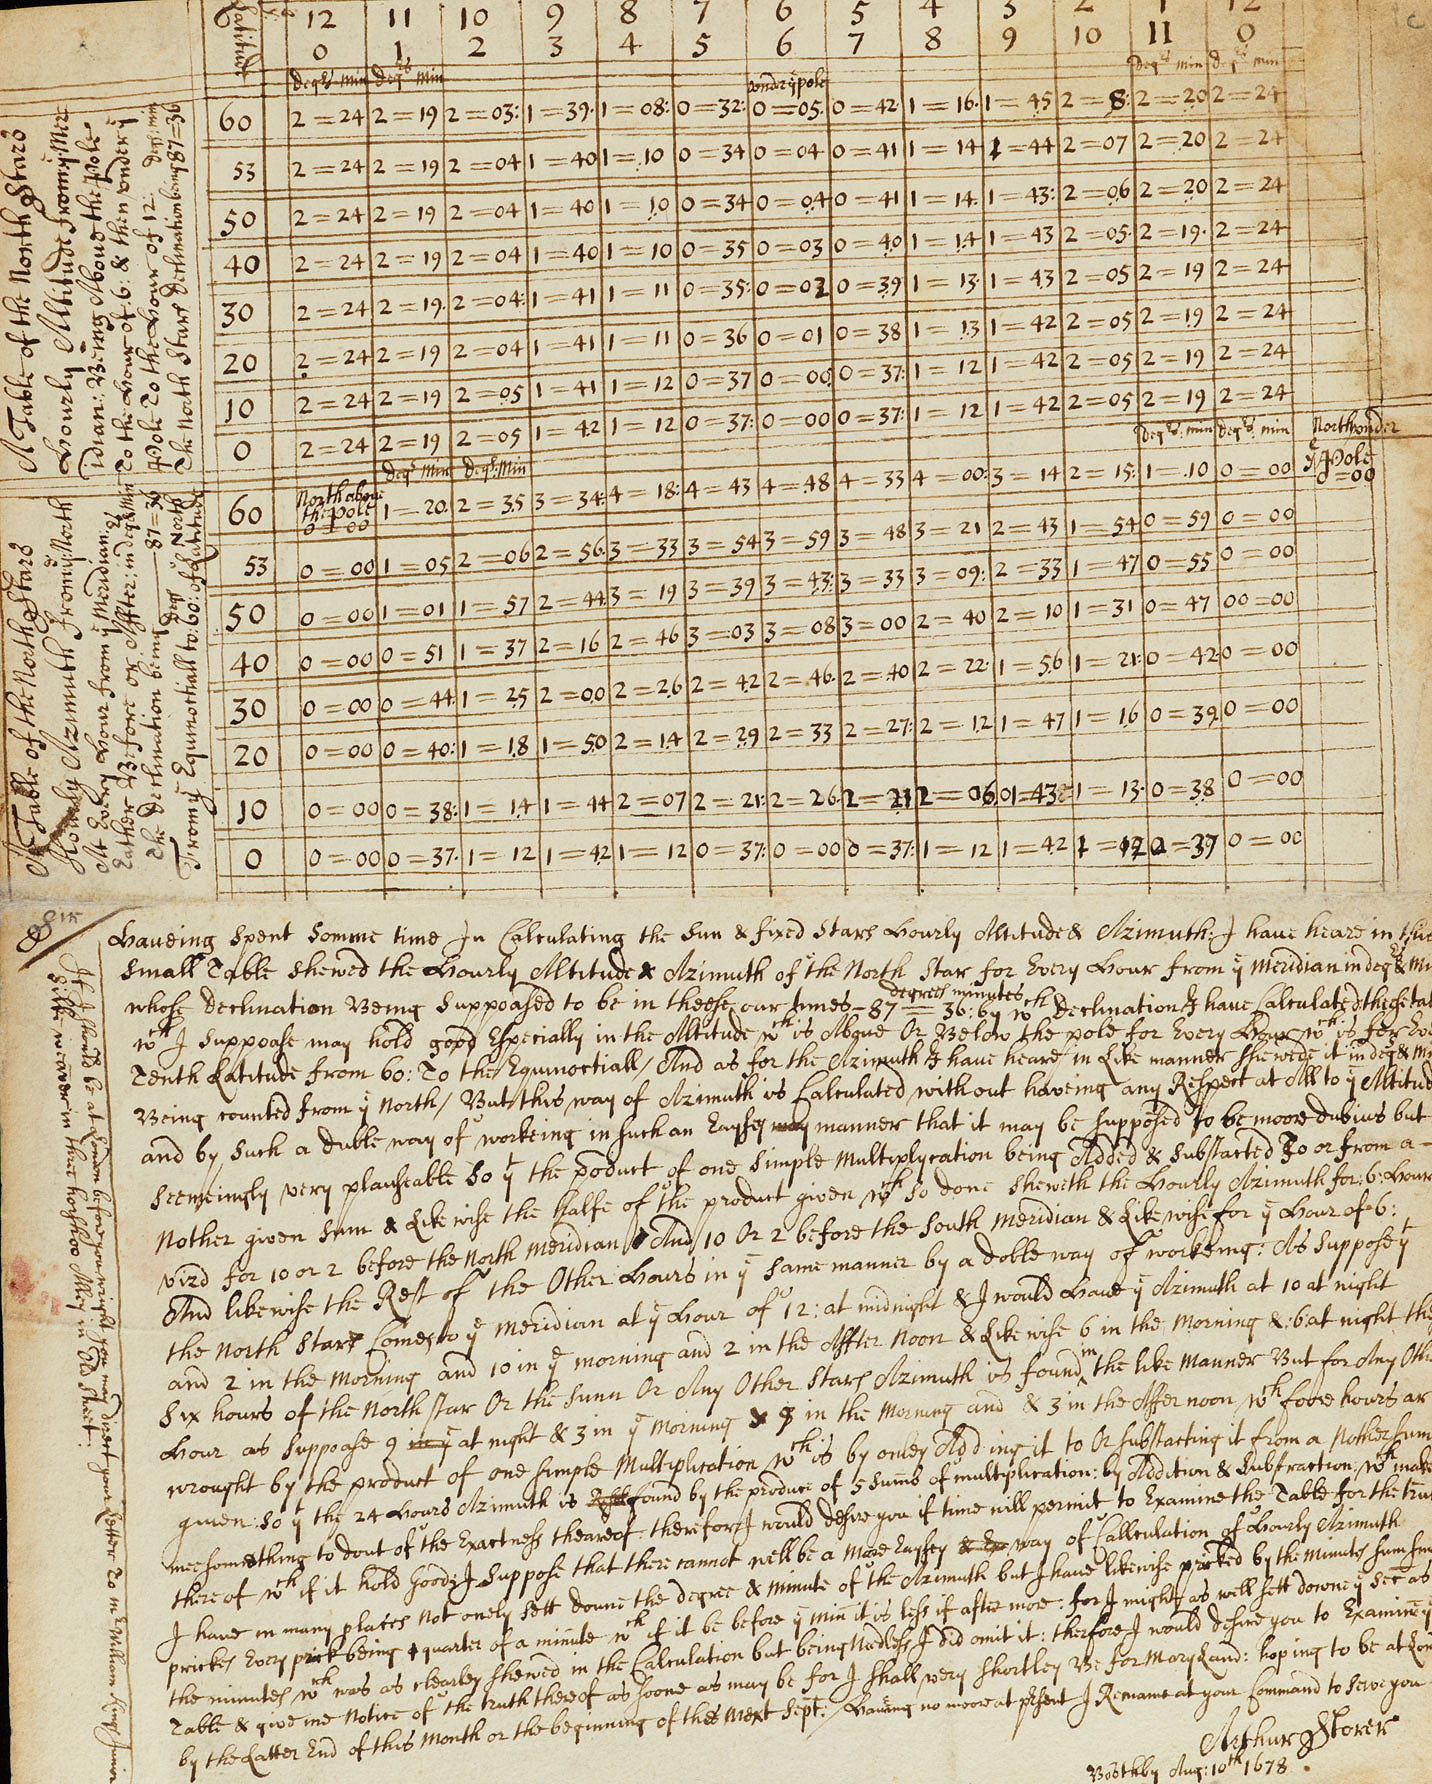 Latitude 12 11 10 9 8 7 6 5 4 3 2 1 12
0 1 2 3 4 5 6 7 8 9 10 11 0
degrs min degrs min vndr ye pole degrs min degrs min
60 2=24 2=19 2=03: 1=39. 1=08: 0=32: 0=05. 0=42 1=16. 1=45 2=8: 2=20 2=24
53 2=24 2=19 2=04 1=40 1=10 0=34 0=04 0=41 1=14 1=44 2=07 2=20 2=24
50 2=24 2=19 2=04 1=40 1=10 0=34 0=04 0=41 1=14. 1=43: 2=06 2=20 2=24
40 2=24 2=19 2=04 1=40 1=10 0=35 0=03 0=40 1=14 1=43 2=05. 2=19. 2=24
30 2=24 2=19. 2=04: 1=41 1=11 0=35: 0=02 0=39 1=13. 1=43 2=05 2=19 2=24
20 2=24 2=19 2=04 1=41 1=11 0=36 0=01 0=38 1=13 1=42 2=05 2=19 2=24
10 2=24 2=19 2=05 1=41 1=12 0=37 0=00 0=37: 1=12 1=42 2=05 2=19 2=24
0 2=24 2=19 2=05 1=42 1=12 0=37: 0=00 0=37: 1=12 1=42 2=05 2=19 2=24
degrs min degrs Min degrs min degrs min North vnder
60 North aboue the pole 0=00 1=20. 2=35 3=34: 4=18: 4=43 4=48 4=33 4=00: 3=14 2=15: 1=10 0=00 ye Pole 0=00
53 0=00 1=05 2=06 2=56. 3=33 3=54 3=59 3=48 3=21 2=43 1=54 0=59 0=00
50 0=00 1=01 1=57 2=44. 3=19 3=39 3=43: 3=33 3=09: 2=33 1=47 0=55 0=00
40 0=00 0=51 1=37 2=16 2=46 3=03 3=08 3=00 2=40 2=10 1=31 0=47 00=00
30 0=00 0=44: 1=25 2=00 2=26 2=42 2=46. 2=40 2=22: 1=56 1=21: 0=42 0=00
20 0=00 0=40: 1=18 1=50 2=14 2=29 2=33 2=27: 2=12 1=47 1=16 0=39 0=00
10 0=00 0=38: 1=14 1=44 2=07 2=21: 2=26. 2=21 2=06. 01=43: 1=13. 0=38 0=00
0 0=00 0=37. 1=12 1=42 1=12 0=37: 0=00 0=37: 1=12 1=42 1=12 0=37 0=00
A Table of the North Stars
Hourly Altitude from ye Meri
dian: Being Aboue the Pole
To the Hour of 6: & then vnder ye
Pole To the Hour of 12: degrs: min
The North Stars Declination being 87=36
A Table of the North Stars
Hourly Azimuth from ye North
At Every Hour from ye Meridian:
Eather Before or Affter: in degrs & Min
The Declination being 87=36
From ye Equinoctiall to 60: degs of North Latitude
Sir
Haueing Spent Somme time In Calculating the Sun & fixed Stars Hourly Altitude & Azimuth: I have heare in this
Small Table shewed the Hourly Altitude & Azimuth of the North Star for Every Hour from ye Meridian in degrs &
degrees minutes
whose Declination Being Supposed to be in theese our times = 87 = 36: by wch Declination I have Calculated these
wch I Suppose may hold good Especially in the Altitude wch is Aboue Or Below the pole for Every Hour wch is for
Tenth Latitude from 60: To the Equinoctiall / And as for the Azimuth I have heare in Like manner shewede it in deg &
Being counted from ye North / But this way of Azimuth is Calculated without haveing any Respect at All to ye Altitud
and by Such a duble way of workeing in such an Eaysey way manner that it may be Supposed to be moore dubius but
Seemeingly very plauseable So yt the product of one Simple Multiplycation being Added & Substacted To or from a-
Nother given Sum & Like wise the halfe of the product given wch so done sheweth the Hourly Azimuth for: 6: Hours
vizd for 10 or 2 before the North Meridian And 10 Or 2 before the South Meridian & Likewise for ye Hour of 6:
And likewise the Rest of the Other Hours in ye Same manner by a doble way of workeing: As Suppose yt
the North Starr Comes to ye Meridian at ye Hour of 12: at midnight & I would Haue ye Azimuth at 10 at night
and 2 in the Morning and 10 in ye morning and 2 in the Affter Noon & Likewise 6 in the Morning & : 6 at night
Six hours of the North star Or the Sunn Or Any Other Stars Azimuth is found in the like Manner But for Any
Hour as Suppose 9 at night & 3 in ye Morning & 9 in the Morning and & 3 in the Affernoon wch fore hours ar
wrought by the product of one Simple Multiplication wch is by onley Adding it to Or Substacting it from a Nother Sum
given: So yt the 24 Hours Azimuth is found by the produce of 5 Sums of multiplication: by Addition & Substraction: wch make
mee Something to dout of the Exactness theareof: therefore I would desire you if time will permit to Examine the Table for the
there of wch if it hold good: I Suppose that there cannot well be a More Eaysey way of Callculation of Hourly Azimuth
I haue in many places not onely Sett downe the degree & minute of the Azimuth but I haue likewise pricked by the Minutes
prickes Every prick being quarter of a minute wch if it be before ye min it is less if after more: for I might as well Sett downe ye Sec as
the minutes wch was as clearley shewed in the Calculation but being Nedless I did omit it: therfore I would desire you to Examine ye
Table & give me Notice of the truth there of as soone as may be for I shall very shortley Be for Maryland: hoping to be at
by the Latter End of this Month or the beginning of the Next Sept: / Having no more at present I Remane at your Command to Serve you
Arthur Storer
Aug: 10th 1678.
If I should be at London before you wright you may direct your Letter To Mr William